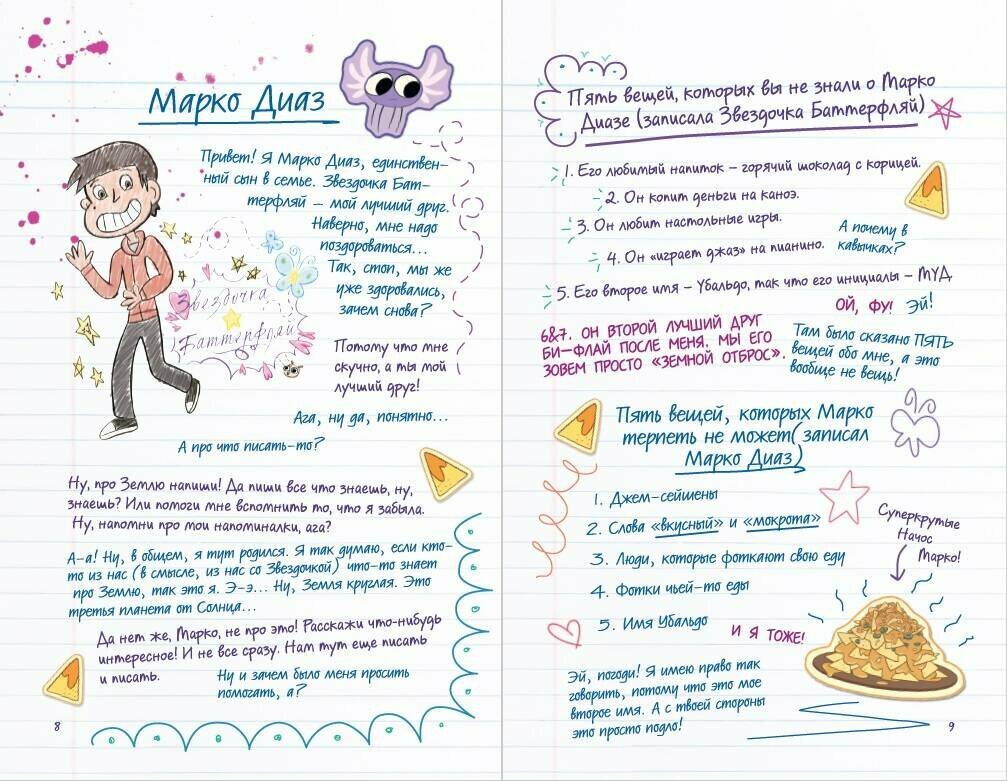 Марко Диаз
Привет! Я Марко Диаз, единствен-
ный сын в семье. Звездочка Бат-
терфляй – мой лучший друг.
Наверно, мне надо
поздороваться...
Так, стоп, мы же
уже здоровались,
зачем снова?
Звездочка
Баттерфляй
Потому что мне
скучно, а ты мой
лучший друг!
Ага, ну да, понятно...
А про что писать-то?
Ну, про Землю напиши! Да пиши все что знаешь, ну,
знаешь? Или помоги мне вспомнить то, что я забыла.
Ну, напомни про мои напоминалки, ага?
А-а! Ну, в общем, я тут родился. Я так думаю, если кто-
то из нас (в смысле, из нас со Звездочкой) что-то знает
про Землю, так это я. Э-э... Ну, Земля круглая. Это
третья планета от Солнца...
Да нет же, Марко, не про это! Расскажи что-нибудь
интересное! И не все сразу. Нам тут еще писать
и писать.
Ну и зачем было меня просить
помогать, а?
8
Пять вещей, которых вы не знали о Марко
Диазе (записала Звездочка Баттерфляй)
1. Его любимый напиток – горячий шоколад с корицей.
2. Он копит деньги на каноэ.
3. Он любит настольные игры.
4. Он «играет джаз» на пианино.
А почему в
кавычках?
5. Его второе имя – Убальдо, так что его инициалы – МУД.
Ой, фу! Эй!
6&7. ОН ВТОРОЙ ЛУЧШИЙ ДРУГ
БИ-ФЛАЙ ПОСЛЕ МЕНЯ. МЫ ЕГО
ЗОВЕМ ПРОСТО «ЗЕМНОЙ ОТБРОС».
Там было сказано ПЯТЬ
вещей обо мне, а это
вообще не вещь!
Пять вещей, которых Марко
терпеть не может (записал
Марко Диаз)
1. Джем-сейшены
2. Слова «вкусный» и «мокрота»
3. Люди, которые фоткают свою еду
4. Фотки чьей-то еды
5. Имя Убальдо
И Я ТОЖЕ!
Суперкрутые
Начос
Марко!
Эй, погоди! Я имею право так
говорить, потому что это мое
второе имя. А с твоей стороны
это просто подло!
9